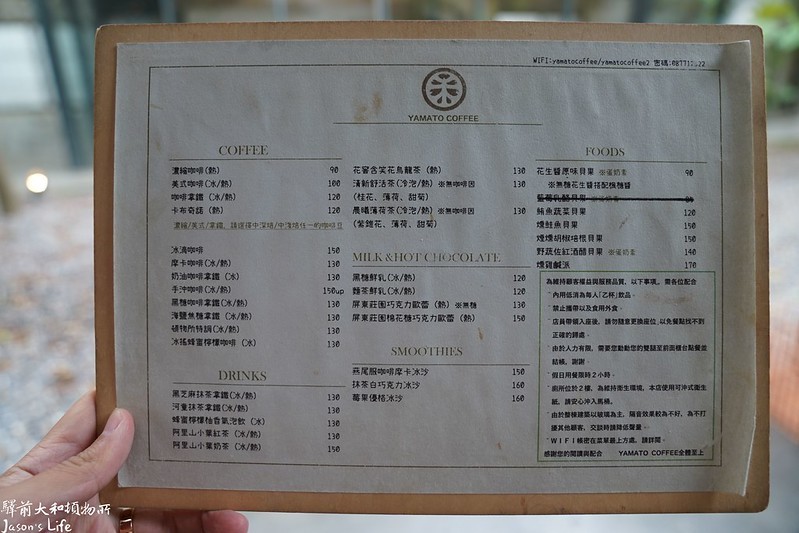 WIFI:yamatocoffee/yamatocoffee2 密碼:
YAMATO COFFEE
COFFEE
濃縮咖啡(熱) 90
美式咖啡(冰/熱) 100
咖啡拿鐵 (冰/熱) 120
卡布奇諾 (熱) 120
冰滴咖啡 150
摩卡咖啡(冰/熱) 130
奶油咖啡拿鐵 (冰) 130
手沖咖啡(冰/熱) 150up
黑糖咖啡拿鐵(冰/熱) 130
海鹽焦糖拿鐵(冰/熱) 130
植物所特調(冰/熱) 130
冰搖蜂蜜檸檬咖啡 (冰) 130
DRINKS
黑芝麻抹茶拿鐵(冰/熱) 130
河童抹茶拿鐵(冰/熱) 130
蜂蜜檸檬柚香氣泡飲 (冰) 130
阿里山小葉紅茶 (冰/熱) 130
阿里山小葉奶茶 (冰/熱) 150
花蜜含笑花烏龍茶 (熱) 130
清新舒活茶(冷泡/熱) ※無咖啡因 130
(桂花、薄荷、甜菊)
晨曦薄荷茶(冷泡/熱) ※無咖啡因 130
(紫錐花、薄荷、甜菊)
MILK & HOT CHOCOLATE
黑糖鮮乳(冰/熱) 120
麵茶鮮乳(冰/熱) 120
屏東莊園巧克力歐蕾 (熱) ※無糖 130
屏東莊園棉花糖巧克力歐蕾 (熱) 150
SMOOTHIES
燕尾服咖啡摩卡冰沙 150
抹茶白巧克力冰沙 160
莓果優格冰沙 160
FOODS
花生醬原味貝果 ※蛋奶素 90
※無糖花生醬搭配楓糖醬
藍莓乳酪貝果 ※蛋奶素
鮪魚蔬菜貝果 120
燻鮭魚貝果 150
煙燻胡椒培根貝果 150
野蔬佐紅酒醋貝果 ※蛋奶素 140
燻雞鹹派 170
為維持顧客權益與服務品質, 以下事項, 需各位配合
˙內用低消為每人「乙杯」飲品。
˙禁止攜帶以及食用外食。
˙店員帶領入座後, 請勿隨意更換座位,以免餐點找不到
正確的歸處。
˙由於人力有限, 需要您勤動您的雙腿至前面櫃台點餐並
結帳, 謝謝。
˙假日用餐限時2小時。
˙廁所位於2樓, 為維持衛生環境, 本店使用可沖式衛生
紙, 請安心沖入馬桶。
˙由於整棟建築以玻璃為主, 隔音效果較為不好, 為不打
擾其他顧客, 交談時請降低聲量。
˙WIFI帳密在菜單最上方處, 請詳閱。
感謝您的閱讀與配合 YAMATO COFFEE全體至上
驛前大和植物所
Jason's Life